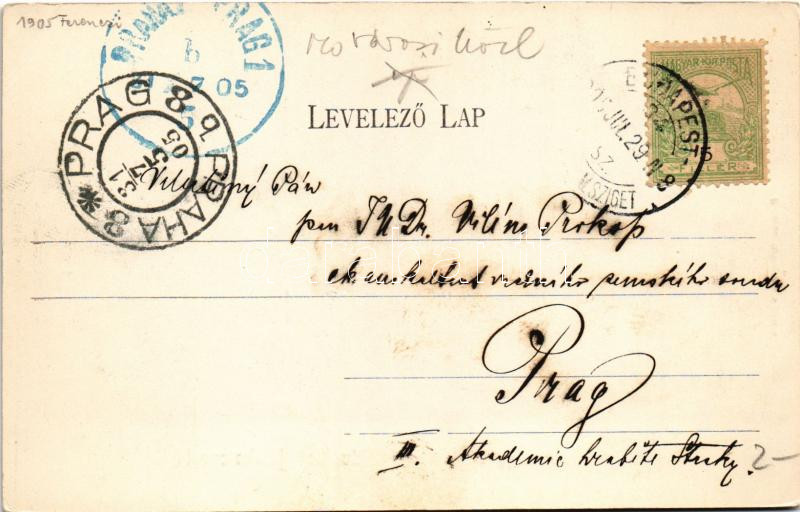 1905 Ferenczi
PRAHA 1 PRAG 1
b
31 7 05
5
LEVELEZŐ LAP
MAGYAR KIR. POSTA
BUDAPEST
JUL. 29
SZIGET
* PRAG 8 b PRAHA 8
31 7 05
5
Velectěný Pán
pan JUDr. Vilém Prokop
Prag
III. Akademie hraběte Straky.
2-